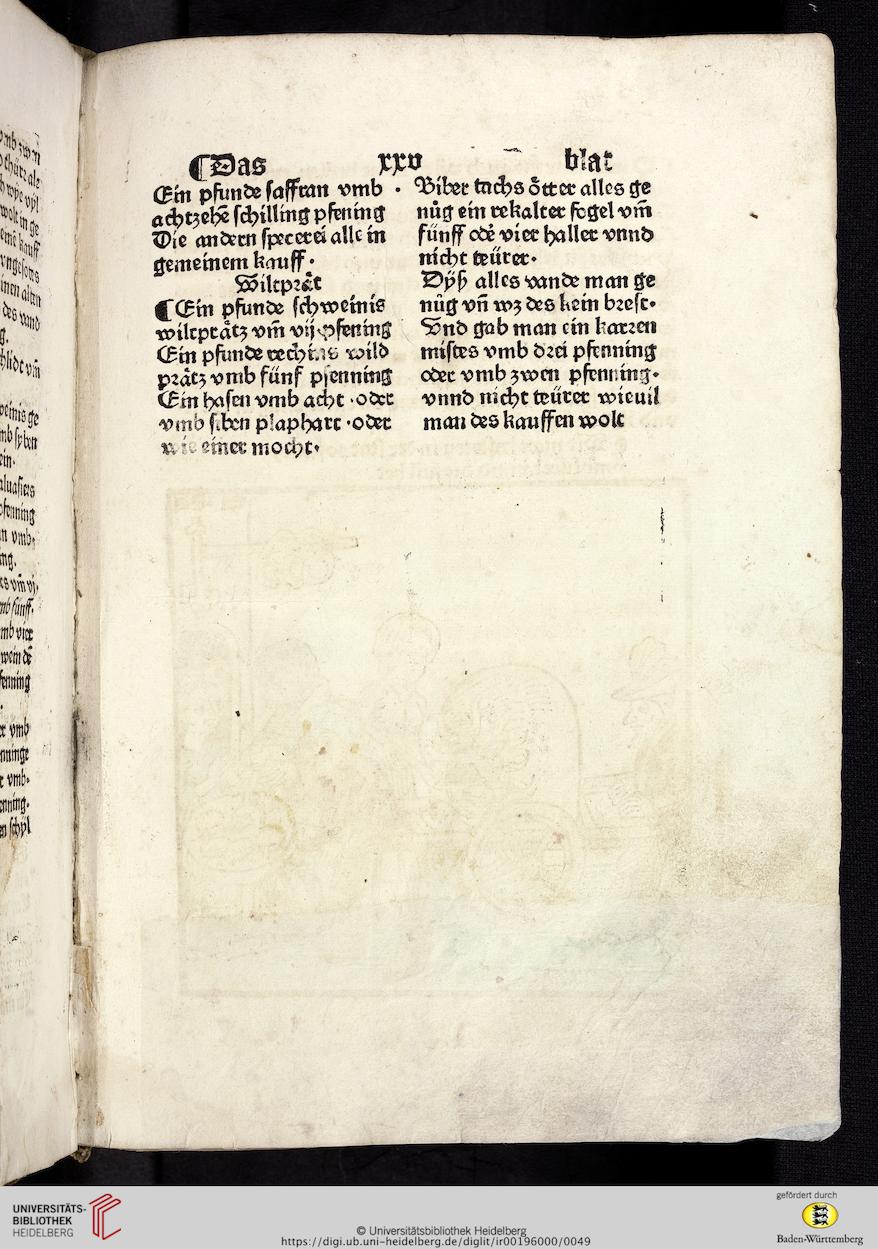 ¶Das xxv blat
Ein pfunde saffran vmb ·
achtzehē schilling pfening
Die andern specerei alle in
gemeinem kauff ·
Wiltprät
¶Ein pfunde schweinis
wiltprätz vm̄ vij pfening
Ein pfunde rechins wild
prätz vmb fünf pfenning
Ein hasen vmb acht · oder
vmb siben plaphart · oder
wie einer mocht·
Biber tachs ötter alles ge
nůg ein rekalter fogel vm̄
fünff odē vier haller vnnd
nicht teürer·
Dÿß alles vande man ge
nůg vn̄ wz des kein brest·
Vnd gab man ein karren
mistes vmb drei pfenning
oder vmb zwen pfenning·
vnnd nicht teürer wieuil
man des kauffen wolt
UNIVERSITÄTS-
BIBLIOTHEK
HEIDELBERG
© Universitätsbibliothek Heidelberg
https://digi.ub.uni-heidelberg.de/diglit/ir00196000/0049
gefördert durch
Baden-Württemberg